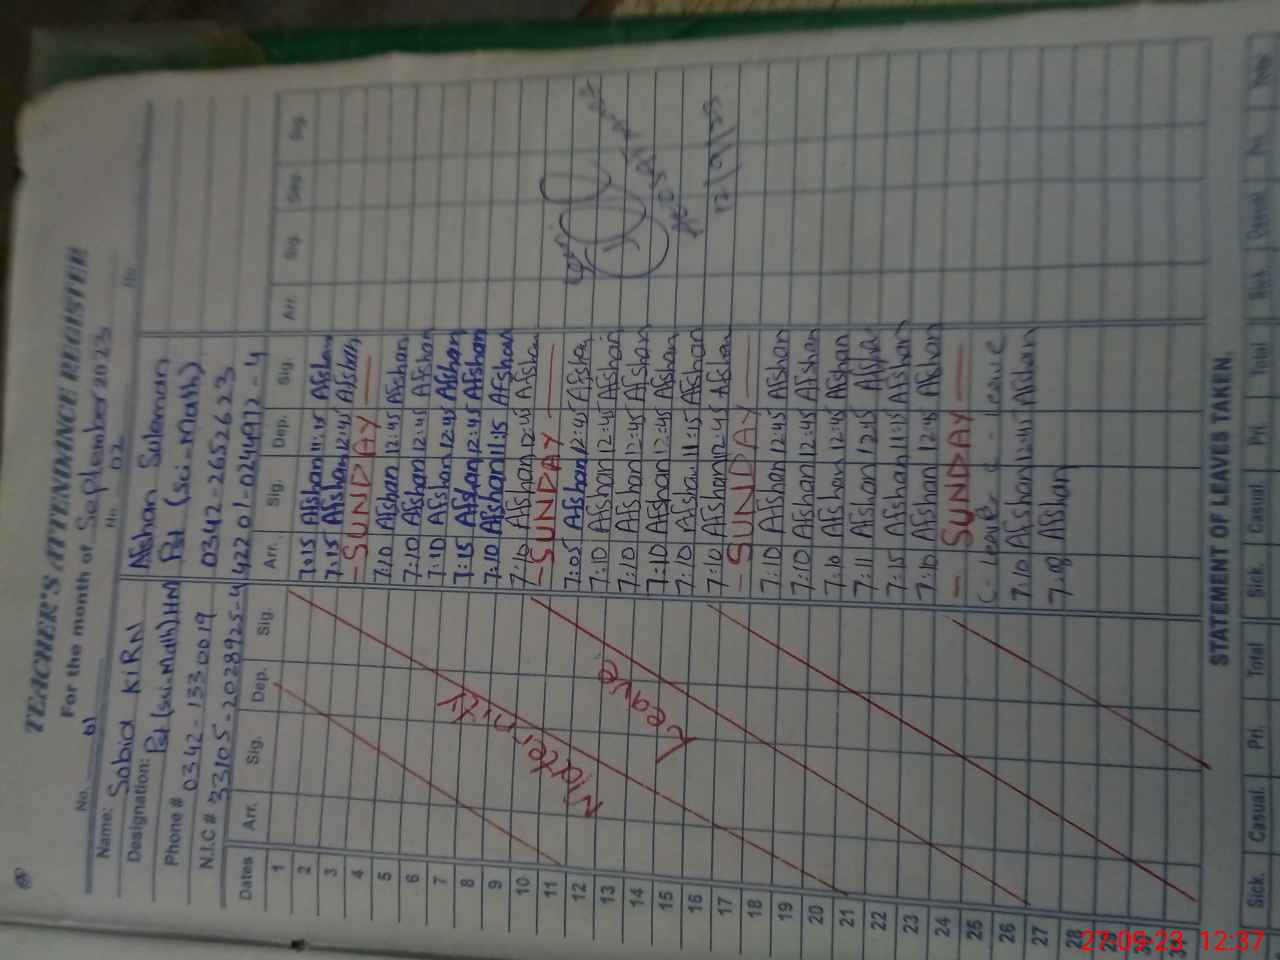 TEACHER'S ATTENDANCE REGISTER
For the month of September 2023
No. b) No. 02 No.
Name: Sobia KiRN Afshan Suleman
Designation: Pst (sci-Math) HN Pst (sci-Math)
Phone # 0342-1330019 0342-2652623
N.I.C # 33105-2028925-4 42201-0244912-4
Dates Arr. Sig. Dep. Sig. Arr. Sig. Dep. Sig. Arr. Sig. Dep. Sig.
1 7:15 Afshan 11:15 Afshan
2 7:15 Afshan 12:45 Afshan
3 - SUNDAY -
4 7:10 Afshan 12:45 Afshan
5 7:10 Afshan 12:45 Afshan
6 7:10 Afshan 12:45 Afshan
7 7:15 Afshan 12:45 Afshan
8 7:10 Afshan 11:15 Afshan
9 7:10 Afshan 12:45 Afshan
10 - SUNDAY -
11 7:05 Afshan 12:45 Afshan
12 7:10 Afshan 12:45 Afshan
13 7:10 Afshan 12:45 Afshan
14 7:10 Afshan 12:45 Afshan
15 7:10 Afshan 11:15 Afshan
16 7:10 Afshan 12:45 Afshan
17 - SUNDAY -
18 7:10 Afshan 12:45 Afshan
19 7:10 Afshan 12:45 Afshan
20 7:10 Afshan 12:45 Afshan
21 7:11 Afshan 12:45 Afshan
22 7:15 Afshan 11:15 Afshan
23 7:10 Afshan 12:45 Afshan
24 - SUNDAY -
25 C-leave C-leave
26 7:10 Afshan 12:45 Afshan
27 7:8 Afshan
28
29
30
31
Maternity Leave
12/9/23
STATEMENT OF LEAVES TAKEN.
Sick. Casual. Pri. Total Sick. Casual Pri. Total Sick Casual Pri. Total
27-09-23 12:37